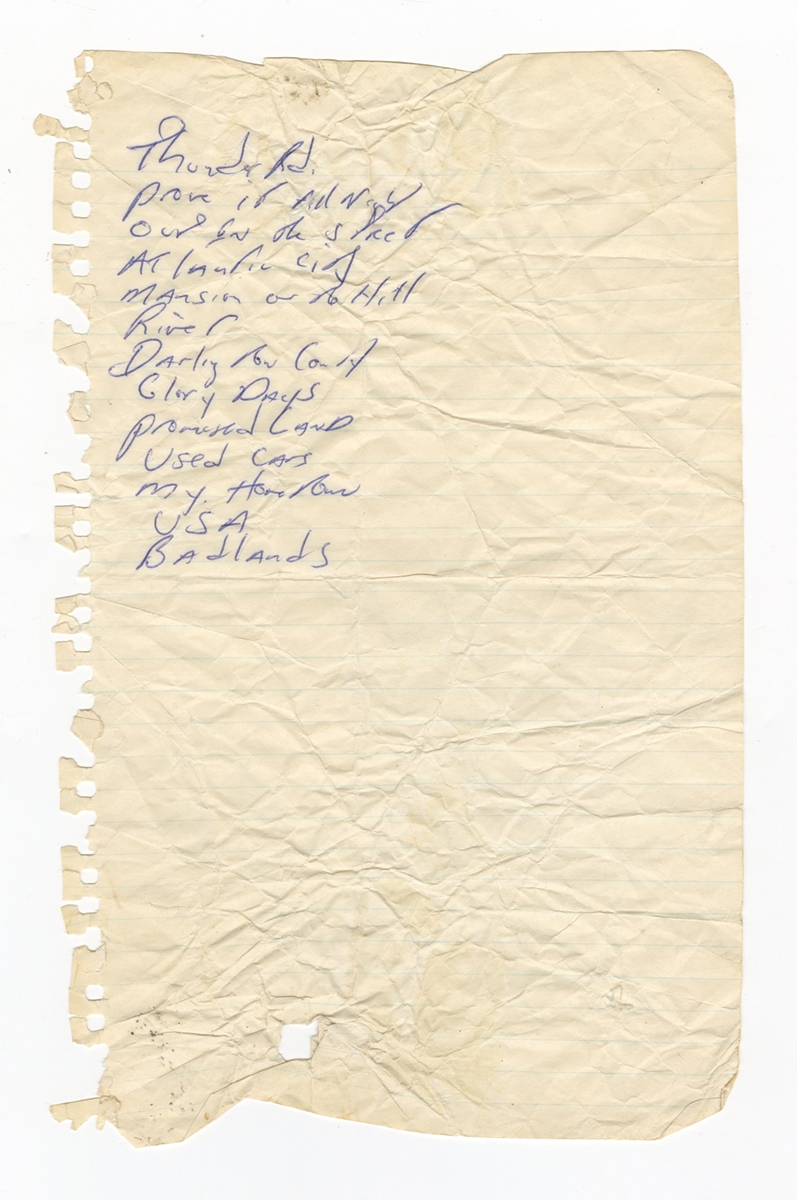 Thunder Rd.
Prove it All Night
Out in the Street
Atlantic City
Mansion on the Hill
River
Darling ton County
Glory Days
promised LAND
Used CArs
My. Hometown
USA
BAdlands